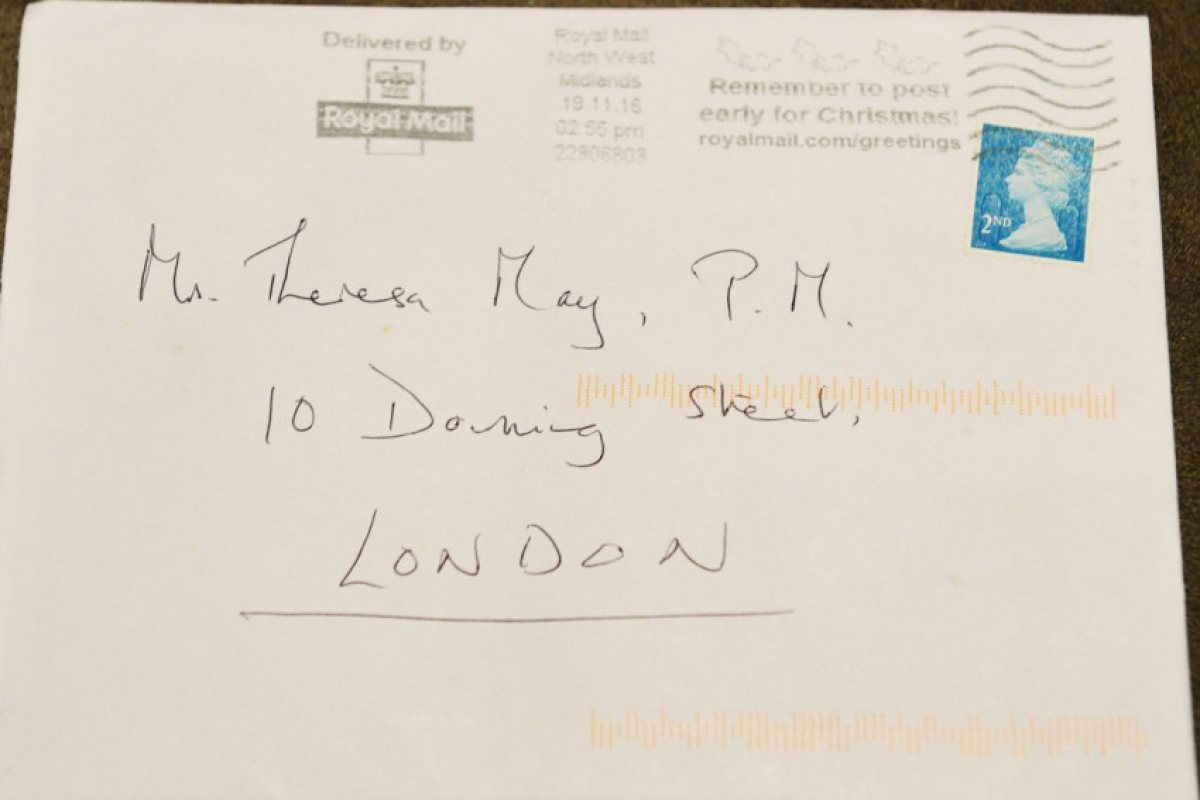 Delivered by
Royal Mail
Royal Mail
North West
Midlands
19.11.16
02:55 pm
22906803
Remember to post
early for Christmas!
royalmail.com/greetings
2ND
Mr. Theresa May, P.M.
10 Downing Street,
LONDON